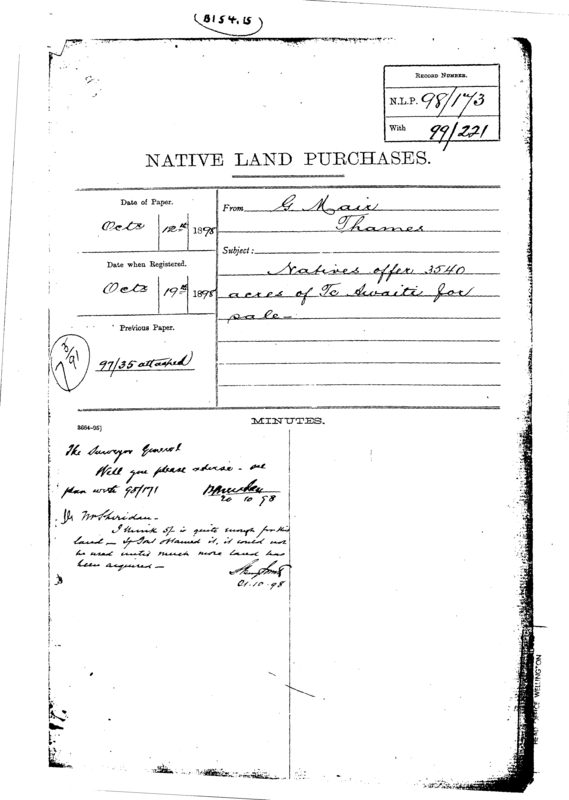 B154.15
RECORD NUMBER.
N.L.P. 98/173
With 99/221
NATIVE LAND PURCHASES.
Date of Paper.
Octr 12th 1898
Date when Registered.
Octr 19th 1898
Previous Paper.
3/91
7
97/35 attached
From G Mair
Thames
Subject:
Natives offer 3540
acres of Te Awaiti for
sale-
MINUTES.
The Surveyor General
Will you please advise - see
plan with 98/171
20 10 98
Mr Sheridan.-
I think 5/- is quite enough for this
land - if Govt obtained it, it would not
be used until much more land has
been acquired -
21-10-98
HEAD OFFICE WELLINGTON